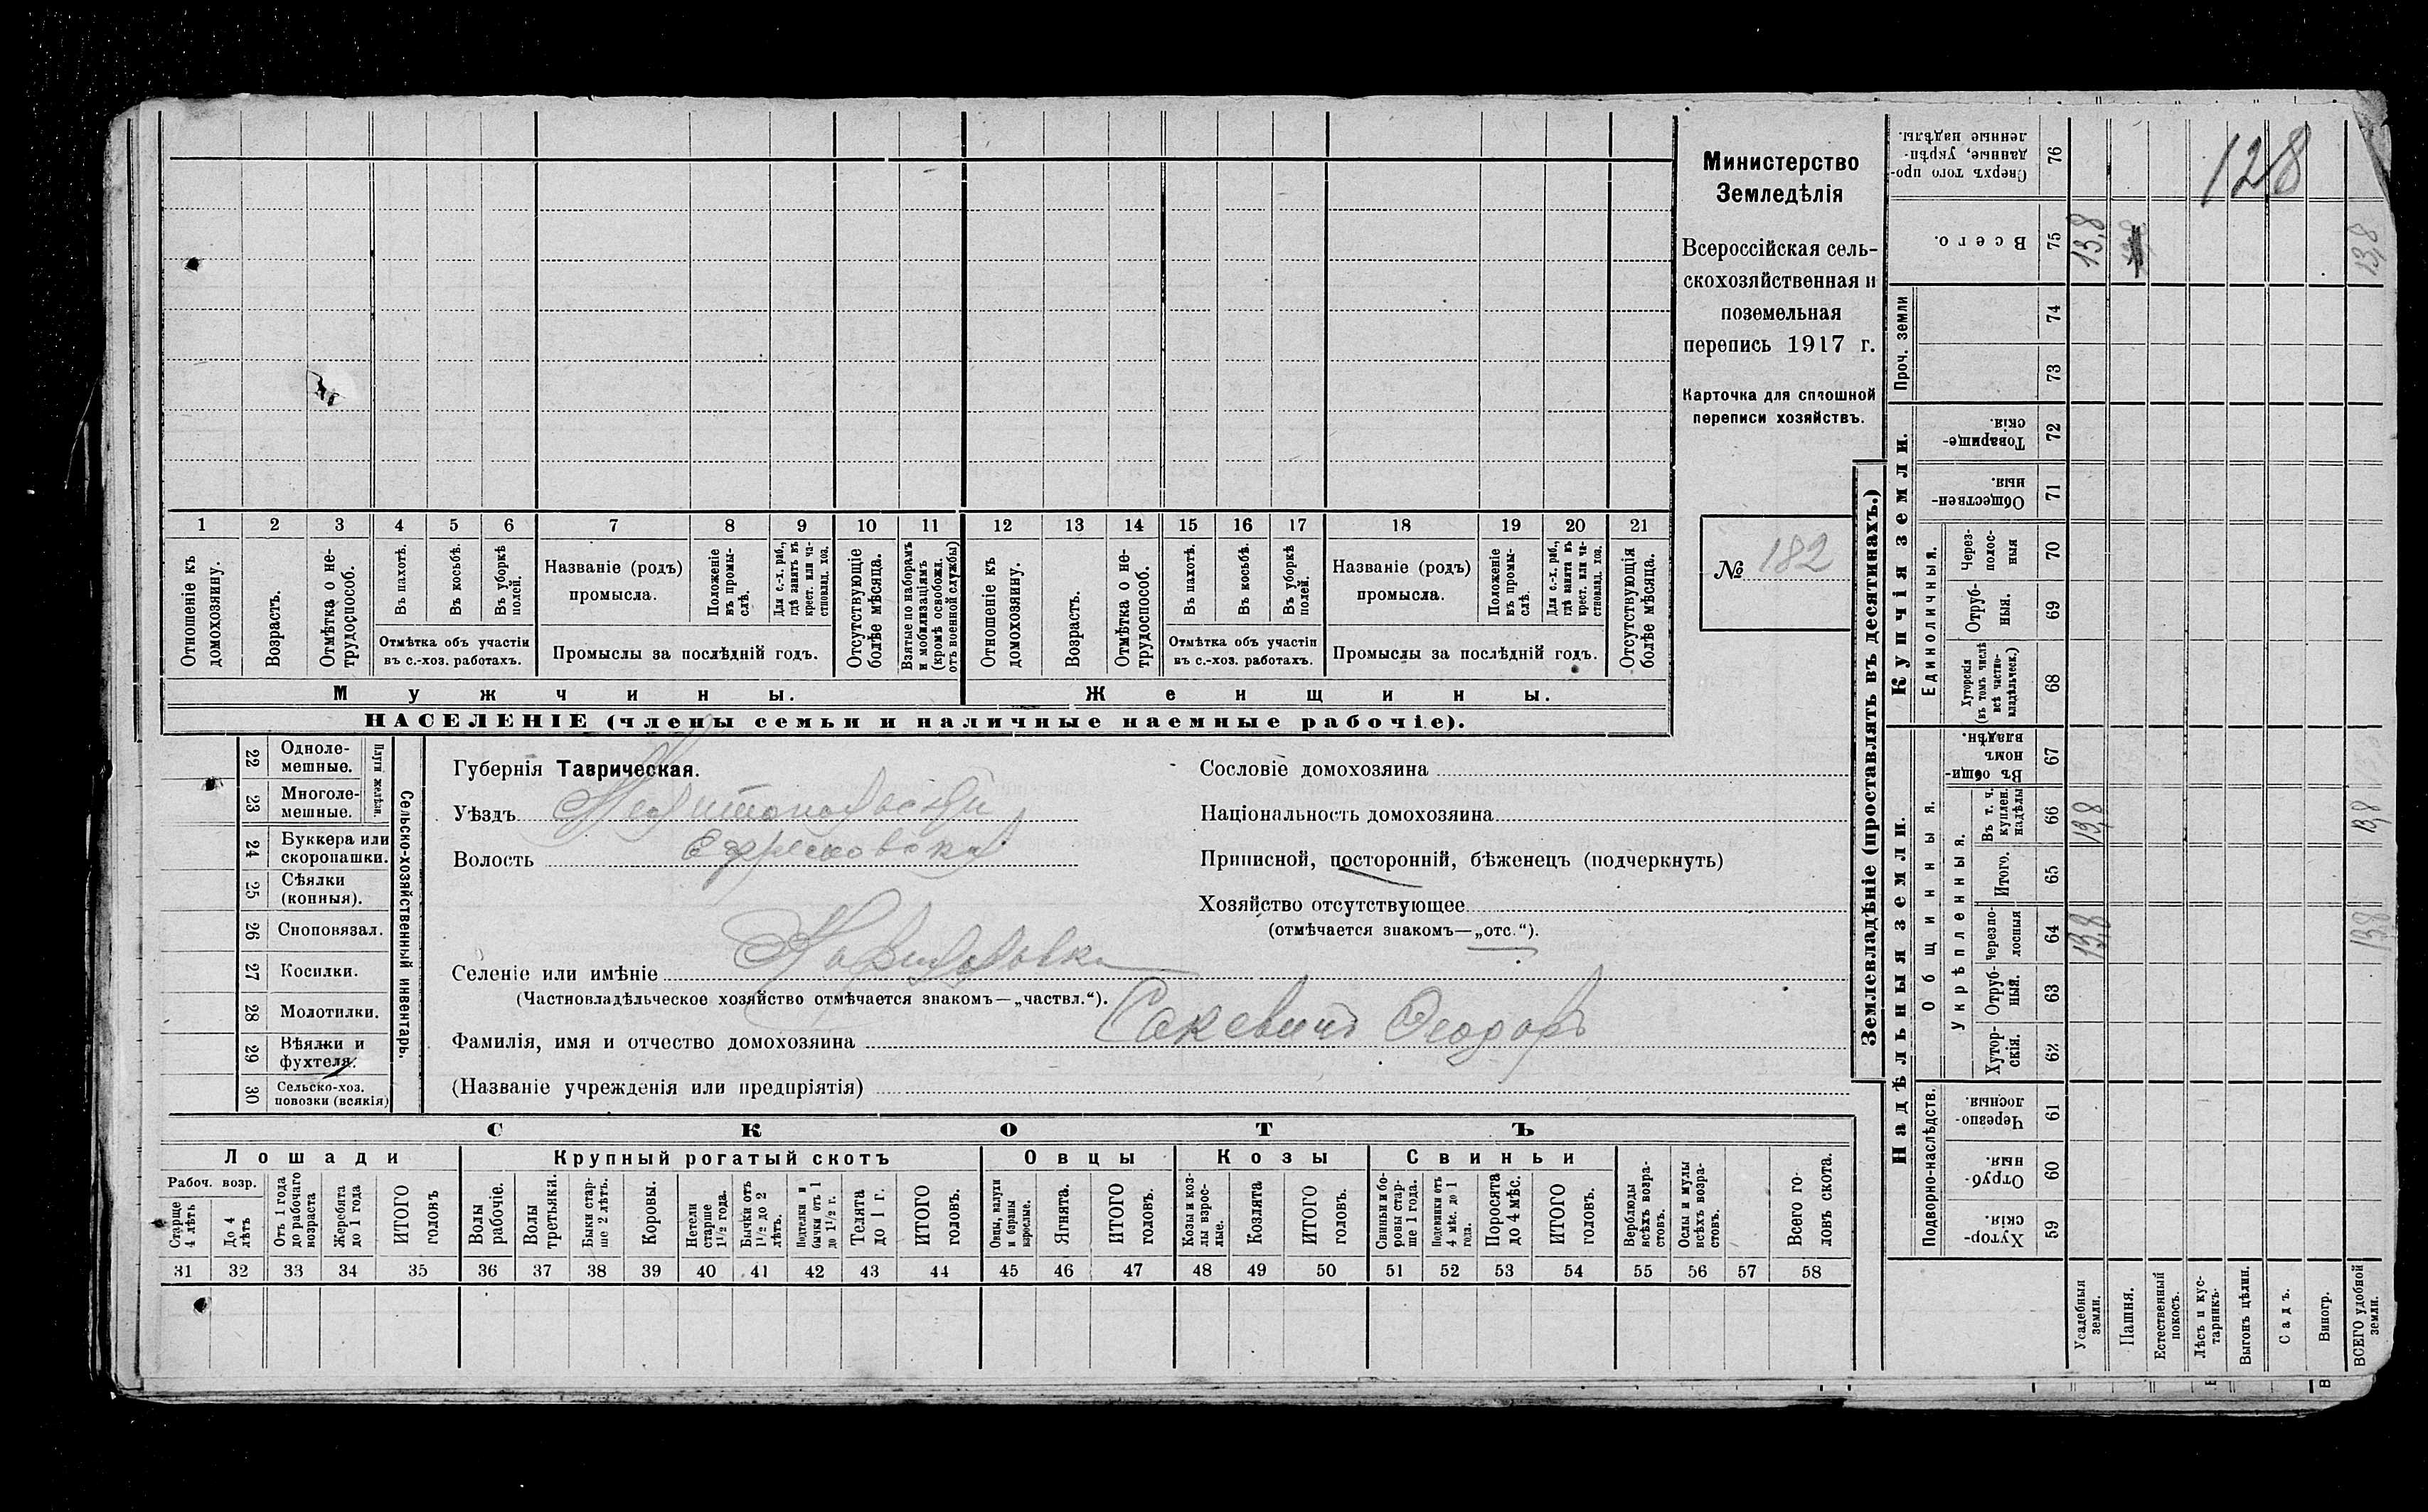 Министерство
Земледѣлія
Всероссійская сель-
скохозяйственная и
поземельная
перепись 1917 г.
Карточка для сплошной
переписи хозяйствъ.
№ 182
128
1 2 3 4 5 6 7 8 9 10 11 12 13 14 15 16 17 18 19 20 21
Отношеніе къ домохозяину.
Возрастъ.
Отмѣтка о не-
трудоспособ.
Въ пахотѣ.
Въ косьбѣ.
Въ уборкѣ
полей.
Отмѣтка объ участіи
въ с.-хоз. работахъ.
Названіе (родъ)
промысла.
Положеніе
въ промы-
слѣ.
Для с.-х. раб.,
гдѣ занятъ въ
крест. или ча-
стновлад. хоз.
Промыслы за послѣдній годъ.
Отсутствующіе
болѣе мѣсяца.
Взятые по наборамъ
и мобилизаціямъ
(кромѣ освобожд.
отъ военной службы)
Отношеніе къ
домохозяину.
Возрастъ.
Отмѣтка о не-
трудоспособ.
Въ пахотѣ.
Въ косьбѣ.
Въ уборкѣ
полей.
Отмѣтка объ участіи
въ с.-хоз. работахъ.
Названіе (родъ)
промысла.
Положеніе
въ промы-
слѣ.
Для с.-х. раб.,
гдѣ занята въ
крест. или ча-
стновлад. хоз.
Промыслы за послѣдній годъ.
Отсутствующія
болѣе мѣсяца.
Мужчины.
Женщины.
НАСЕЛЕНІЕ (члены семьи и наличные наемные рабочіе).
22 Одноле-
мешные.
23 Многоле-
мешные.
Плуги желѣзн.
24 Буккера или
скоропашки.
25 Сѣялки
(конныя).
26 Сноповязал.
27 Косилки.
28 Молотилки.
29 Вѣялки и
фухтеля.
30 Сельско-хоз.
повозки (всякія)
Сельско-хозяйственный инвентарь.
Губернія Таврическая.
Уѣздъ Мелитопольскій
Волость Ефремовская
Селеніе или имѣніе
(Частновладѣльческое хозяйство отмѣчается знакомъ—„частвл.“).
Фамилія, имя и отчество домохозяина Сакевичъ Ѳеодоръ
(Названіе учрежденія или предпріятія)
Сословіе домохозяина
Національность домохозяина
Приписной, посторонній, бѣженецъ (подчеркнуть)
Хозяйство отсутствующее
(отмѣчается знакомъ—„отс.“).
СКОТЪ
Лошади
Крупный рогатый скотъ
Овцы
Козы
Свиньи
Рабоч. возр.
Старше
4 лѣтъ
До 4
лѣтъ
Отъ 1 года
до рабочаго
возраста
Жеребята
до 1 года
ИТОГО
головъ
Волы
рабочіе.
Волы
третьяки.
Быки стар-
ше 2 лѣтъ.
Коровы.
Нетели
старше
1½ года.
Бычки отъ
1½ до 2
лѣтъ.
Подтелки и
бычки отъ 1
до 1½ г.
Телята
до 1 г.
ИТОГО
головъ.
Овцы, валухи
и бараны
взрослые.
Ягнята.
ИТОГО
головъ.
Козы и коз-
лы взрос-
лые.
Козлята
ИТОГО
головъ.
Свиньи и бо-
ровы стар-
ше 1 года.
Подсвинки отъ
4 мѣс. до 1
года.
Поросята
до 4 мѣс.
ИТОГО
головъ.
Верблюды
всѣхъ возра-
стовъ.
Ослы и мулы
всѣхъ возра-
стовъ.
Всего го-
ловъ скота.
31 32 33 34 35 36 37 38 39 40 41 42 43 44 45 46 47 48 49 50 51 52 53 54 55 56 57 58
Землевладѣніе (проставлять въ десятинахъ.)
Надѣльныя земли.
Купчія земли.
Проч. земли
Подворно-наслѣдств.
Общинныя.
Укрѣпленныя.
Единоличныя.
Хутор-
скія. 59
Отруб-
ныя. 60
Черезпо-
лосныя. 61
Хутор-
скія. 62
Отруб-
ныя. 63
Черезпо-
лосныя 64 13,8 13,8
Итого. 65
Въ т. ч.
куплен.
надѣлы 66 13,8 13,8
Въ общин-
номъ
владѣн. 67
Хуторскія
(въ томъ числѣ
всѣ частно-
владѣльческ.) 68
Отруб-
ныя. 69
Через-
полос-
ныя 70
Обществен-
ныя. 71
Товарище-
скія. 72
73
74
Всего. 75 13,8 13,8
Сверхъ того про-
данные, укрѣп-
ленные надѣлы. 76
Усадебныя
земли.
Пашня.
Естественный
покосъ.
Лѣсъ и кус-
тарникъ.
Выгонъ цѣлин.
Садъ.
Виногр.
ВСЕГО удобной
земли.